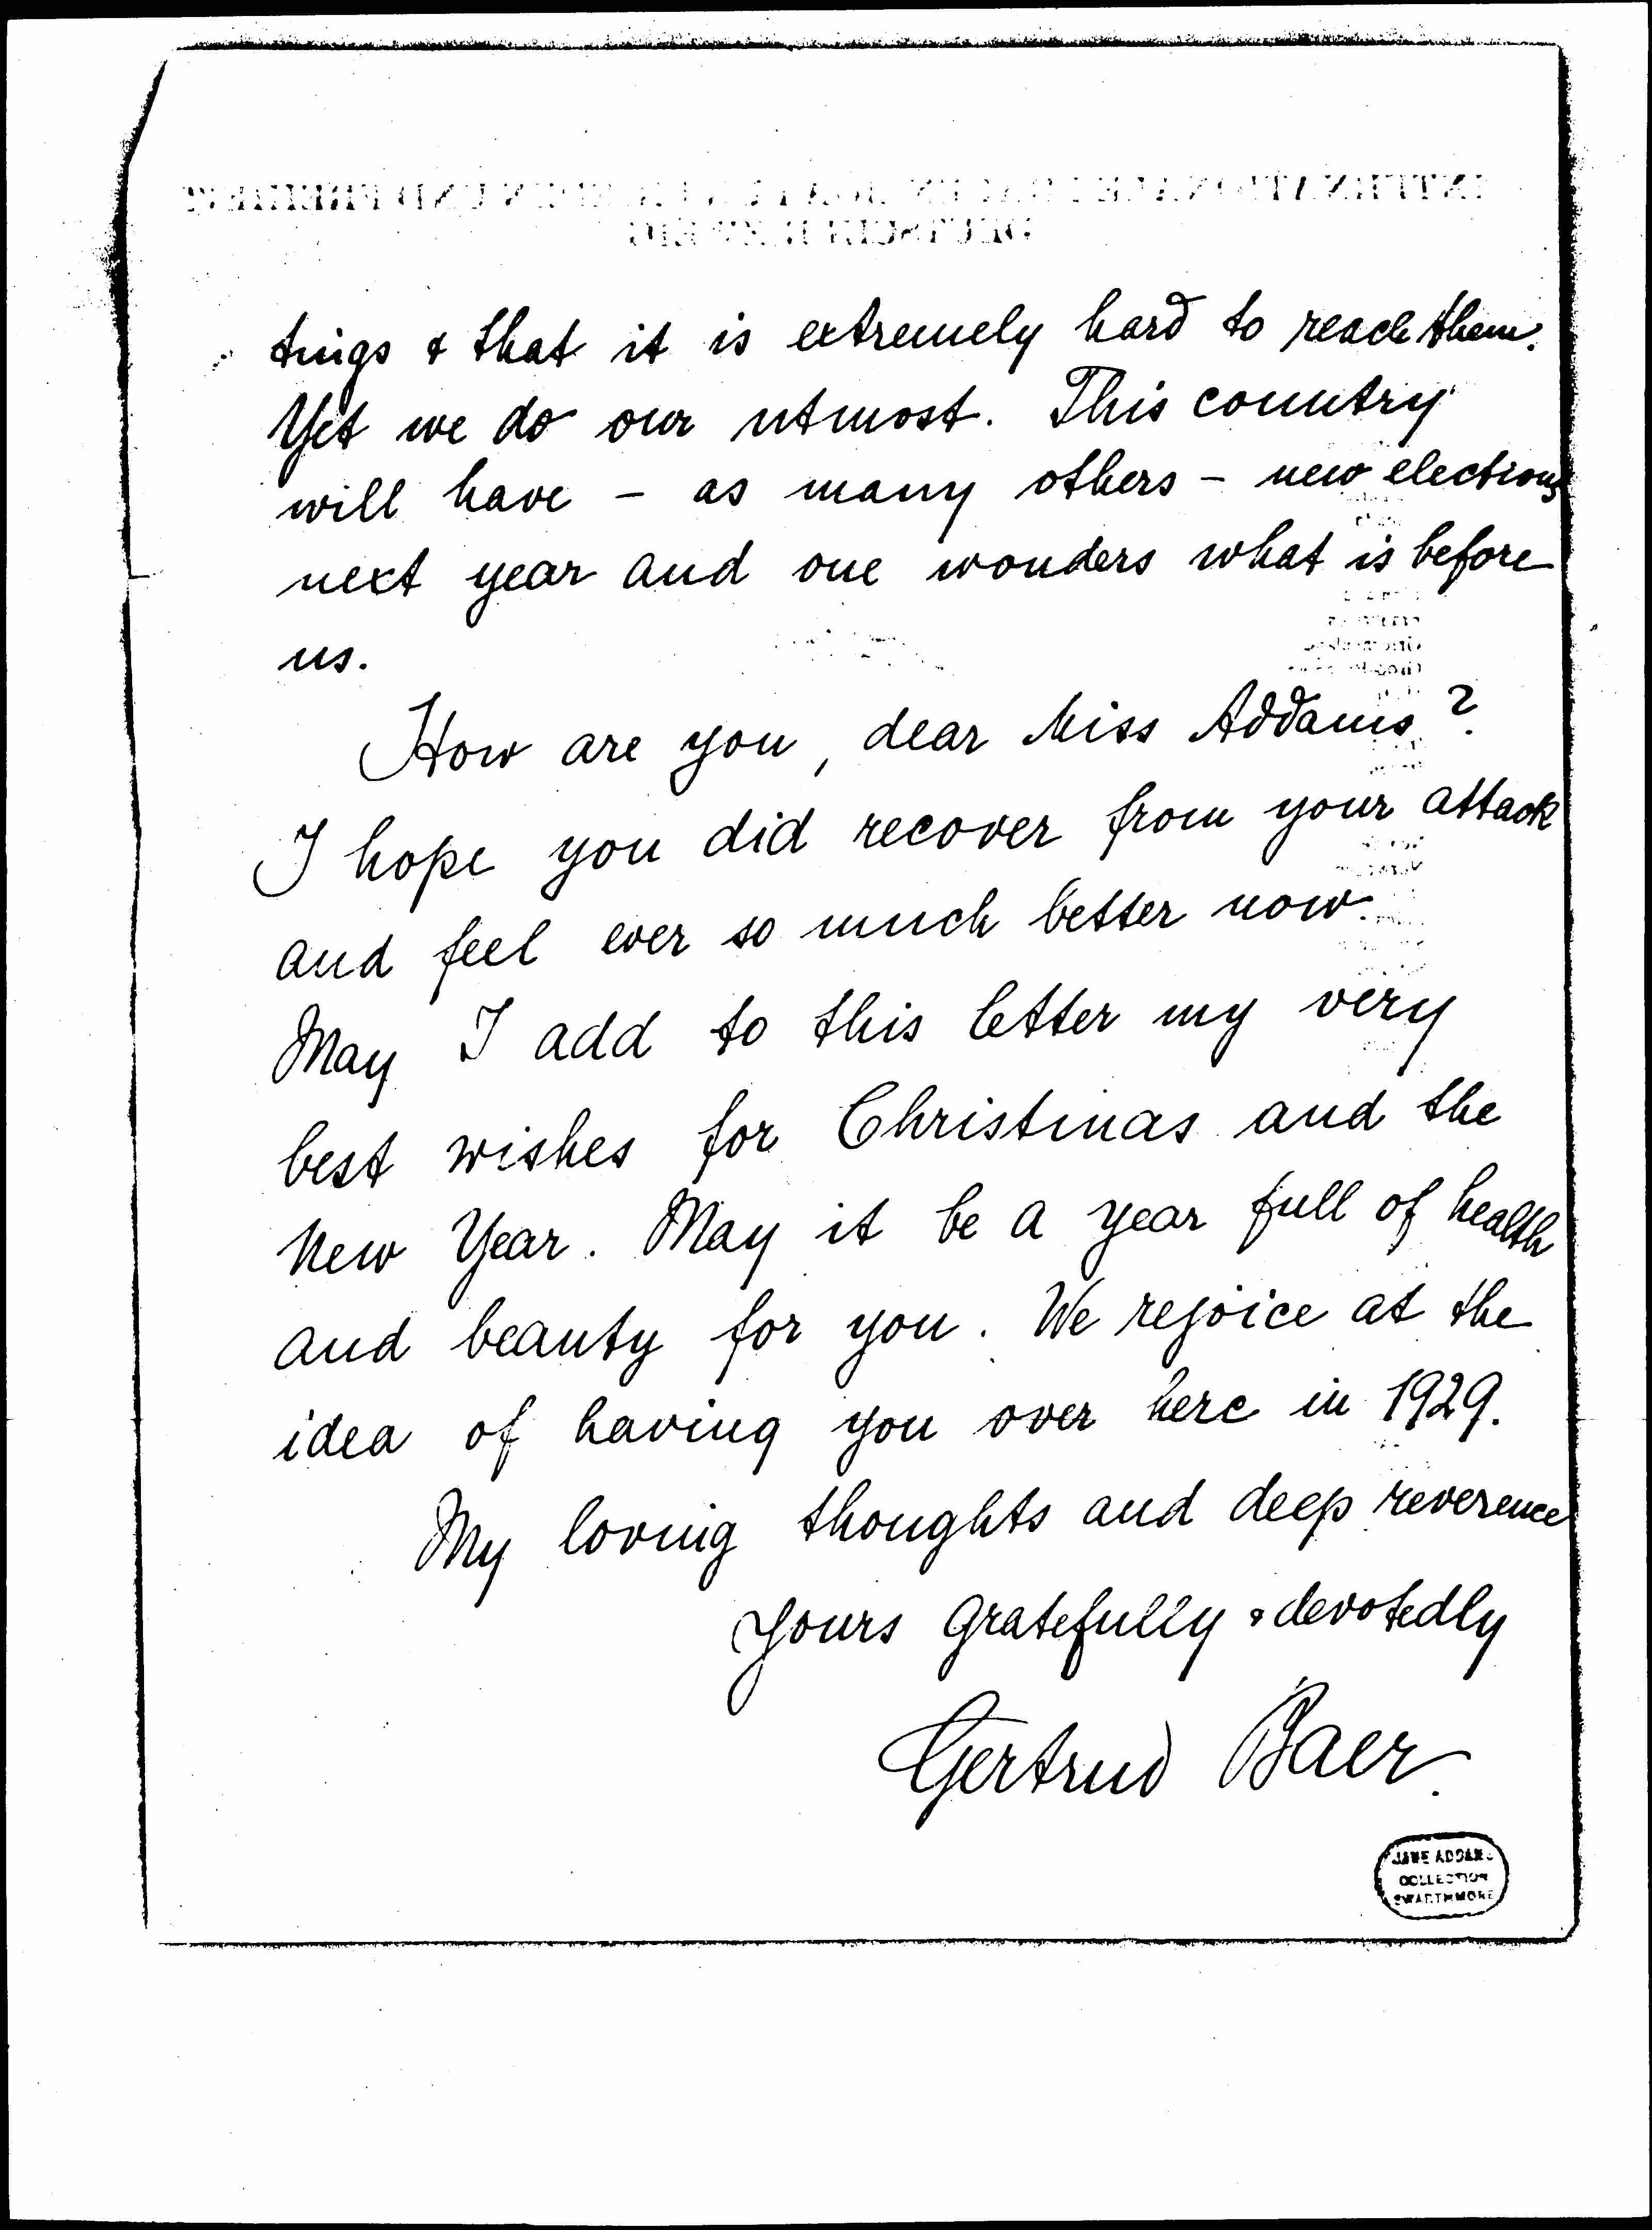 tings & that it is extremely hard to reach them.
Yet we do our utmost. This country
will have – as many others – new elections
next year and one wonders what is before
us.
How are you, dear Miss Addams?
I hope you did recover from your attack
and feel ever so much better now.
May I add to this letter my very
best wishes for Christmas and the
New Year. May it be a year full of health
and beauty for you. We rejoice at the
idea of having you over here in 1929.
My loving thoughts and deep reverence
Yours gratefully & devotedly
Gertrud Baer.
JANE ADDAMS
COLLECTION
SWARTHMORE